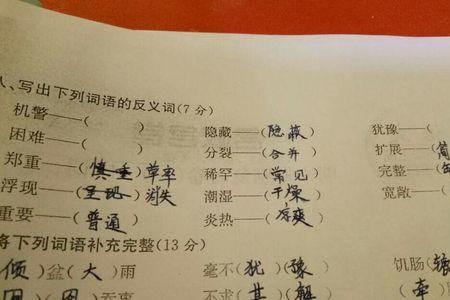 、写出下列词语的反义词(7 分)
机警——( ) 隐藏——(隐蔽) 犹豫——(
困难——( ) 分裂——(合并) 扩展——(简
郑重——(慎重)草率 稀罕——(常见) 完整——(
浮现——(呈现)消失 潮湿——(干燥) 宽敞——(
重要——(普通) 炎热——(凉爽)
将下列词语补充完整(13 分)
倾)盆(大)雨 毫不(犹)(豫) 饥肠(辘
吞枣 不求(甚)( (牵